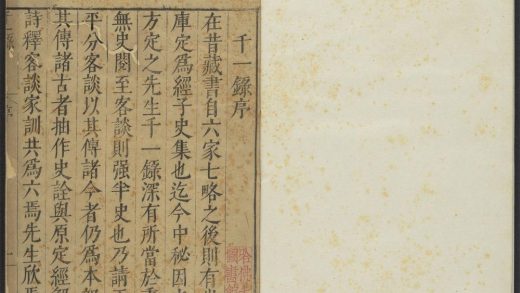 千一錄序
在昔藏書自六家七略之後則有
庫定爲經子史集也迄今中祕因
方定之先生千一錄深有所當於
無史閱至客談則强半史也乃請
平分客談以其傳諸今者仍爲本
其傳諸古者抽作史詮與原定經解
詩釋客談家訓共爲六焉先生欣焉
序